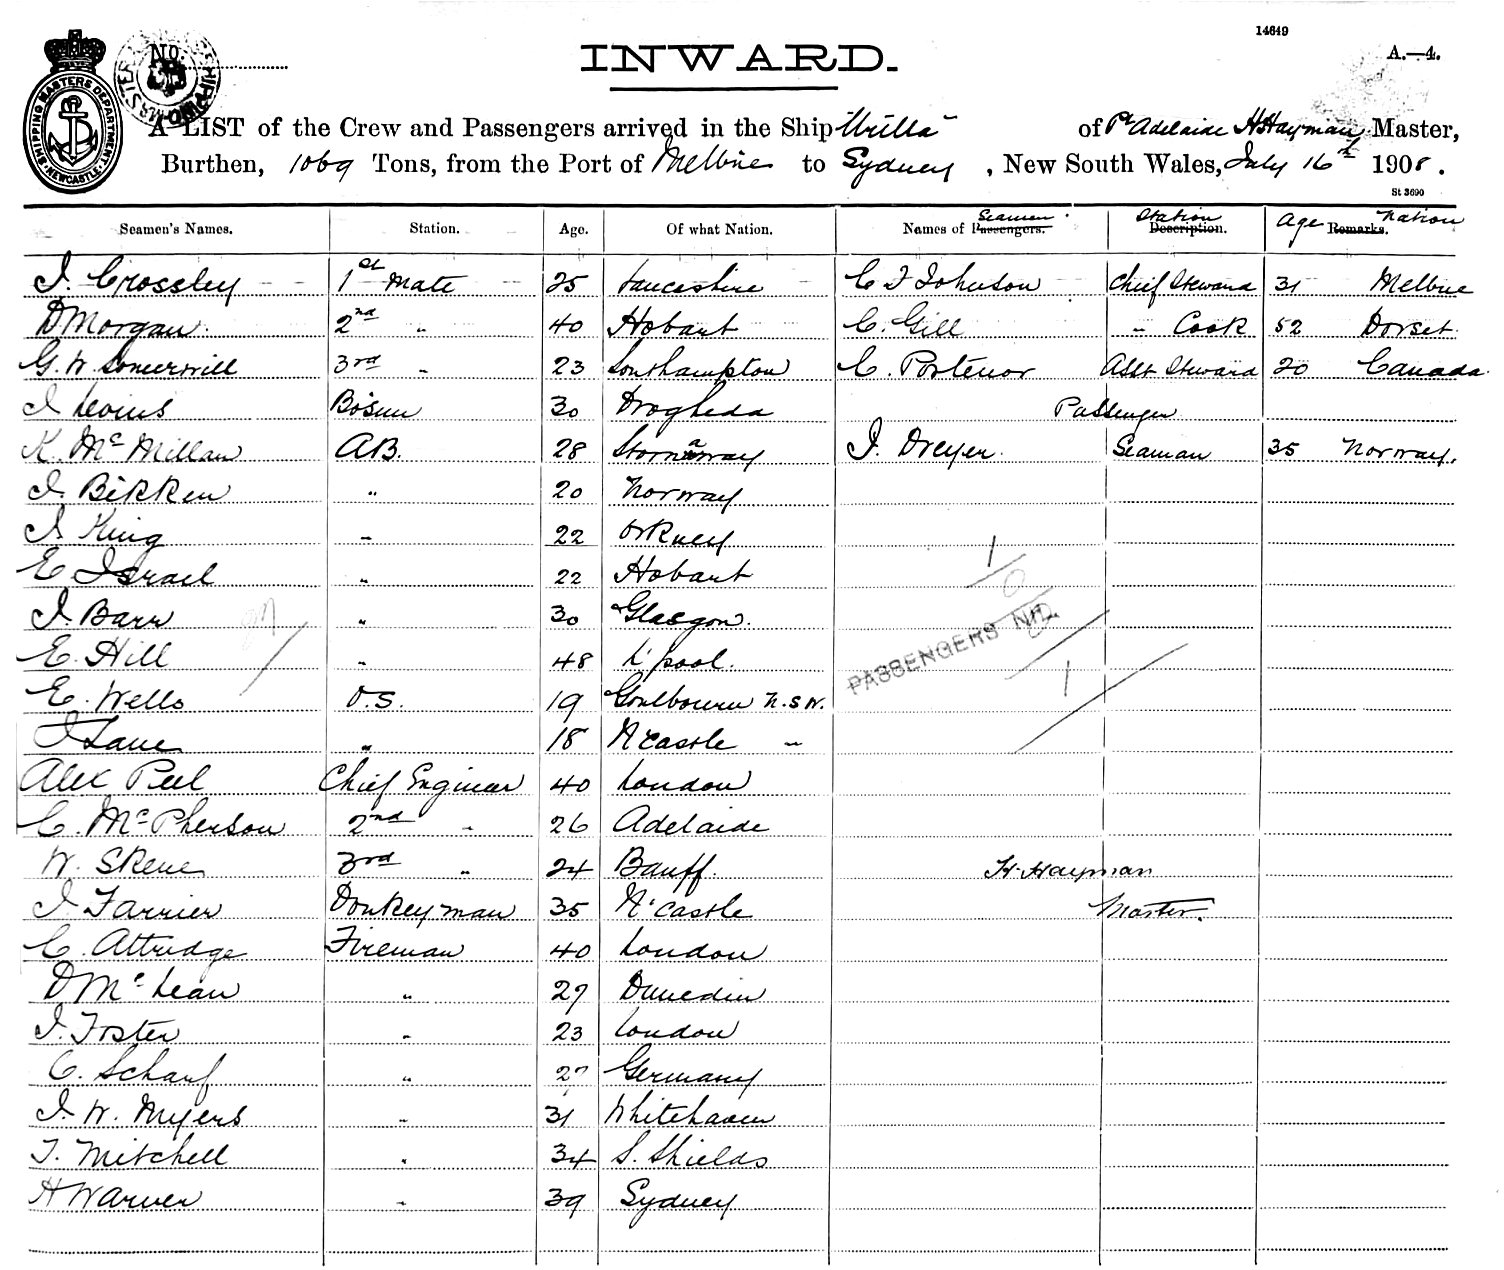 14649
No.
INWARD.
A.—4.
SHIPPING MASTERS DEPARTMENT NEWCASTLE
A LIST of the Crew and Passengers arrived in the Ship "Urilla" of Pt Adelaide H Hayman, Master,
Burthen, 1069 Tons, from the Port of Melbne to Sydney, New South Wales, July 16th 1908.
St 3690
Seamen's Names. Station. Age. Of what Nation. Names of Passengers. Seamen Description. Station Age Remarks. Nation
J. Crossley 1st Mate 25 Lancashire C J Johnson Chief Steward 31 Melbne
D Morgan 2nd " 40 Hobart C. Gill " Cook 52 Dorset
G. W. Somerwill 3rd " 23 Southampton C. Postenor Asst Steward 20 Canada
J. Levins Bosun 30 Drogheda Passenger
K. McMillan A.B. 28 Stornaway J. Dreyer Seaman 35 Norway.
J. Bekken " 20 Norway
J. King " 22 Orkney
E Israel " 22 Hobart
J. Barr " 30 Glasgow.
E. Hill " 48 L'pool.
PASSENGERS NIL.
E. Wells O.S. 19 Goulbourn N.S.W.
J Lane " 18 N'castle "
Alex Peel Chief Engineer 40 London
C. McPherson 2nd " 26 Adelaide
W. Skene 3rd " 24 Banff. H. Hayman
J. Farrier Donkeyman 35 N'castle Master.
C. Attridge Fireman 40 London
D McLean " 27 Dunedin
J. Foster " 23 London
C. Scharf " 27 Germany
J. W. Myers " 31 Whitehaven
T. Mitchell " 34 S. Shields
H Warner " 39 Sydney